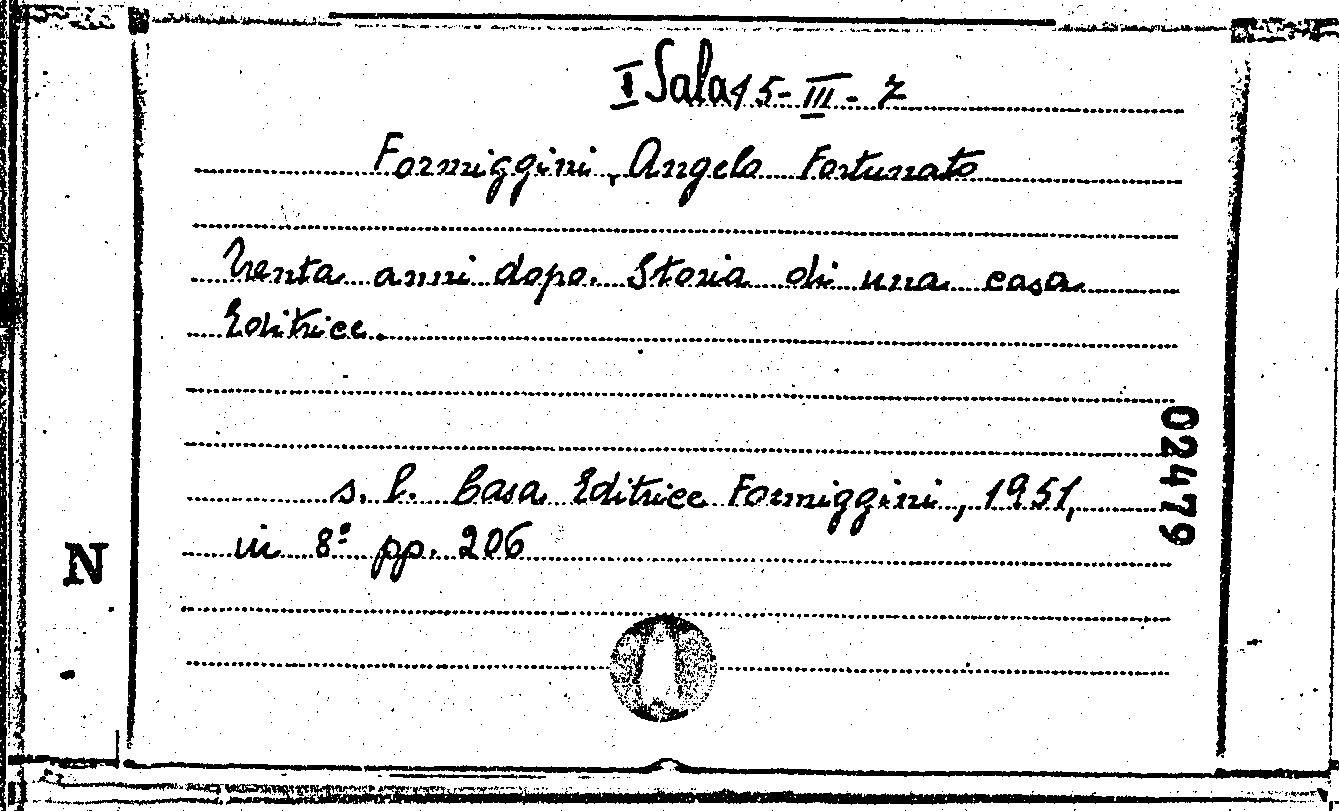 I Sala 15-III-7
Formiggini, Angelo Fortunato
Trenta anni dopo. Storia di una casa
Editrice.
s. l. Casa Editrice Formiggini, 1951,
in 8° pp. 206
02479
N